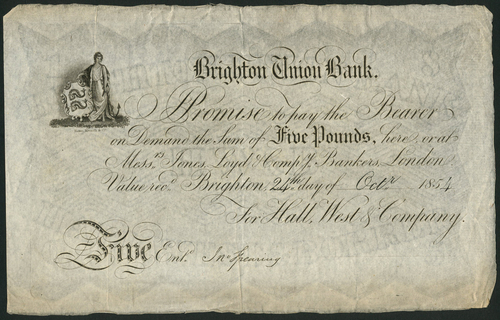 Brighton Union Bank.
I Promise to pay the Bearer
on Demand the Sum of Five Pounds, here or at
Mess.rs Jones, Loyd & Comp.y Bankers, London
Value rec.d Brighton, 24th day of Oct.r 1854
For Hall, West & Company.
Five Ent.d Jn.o Spearing